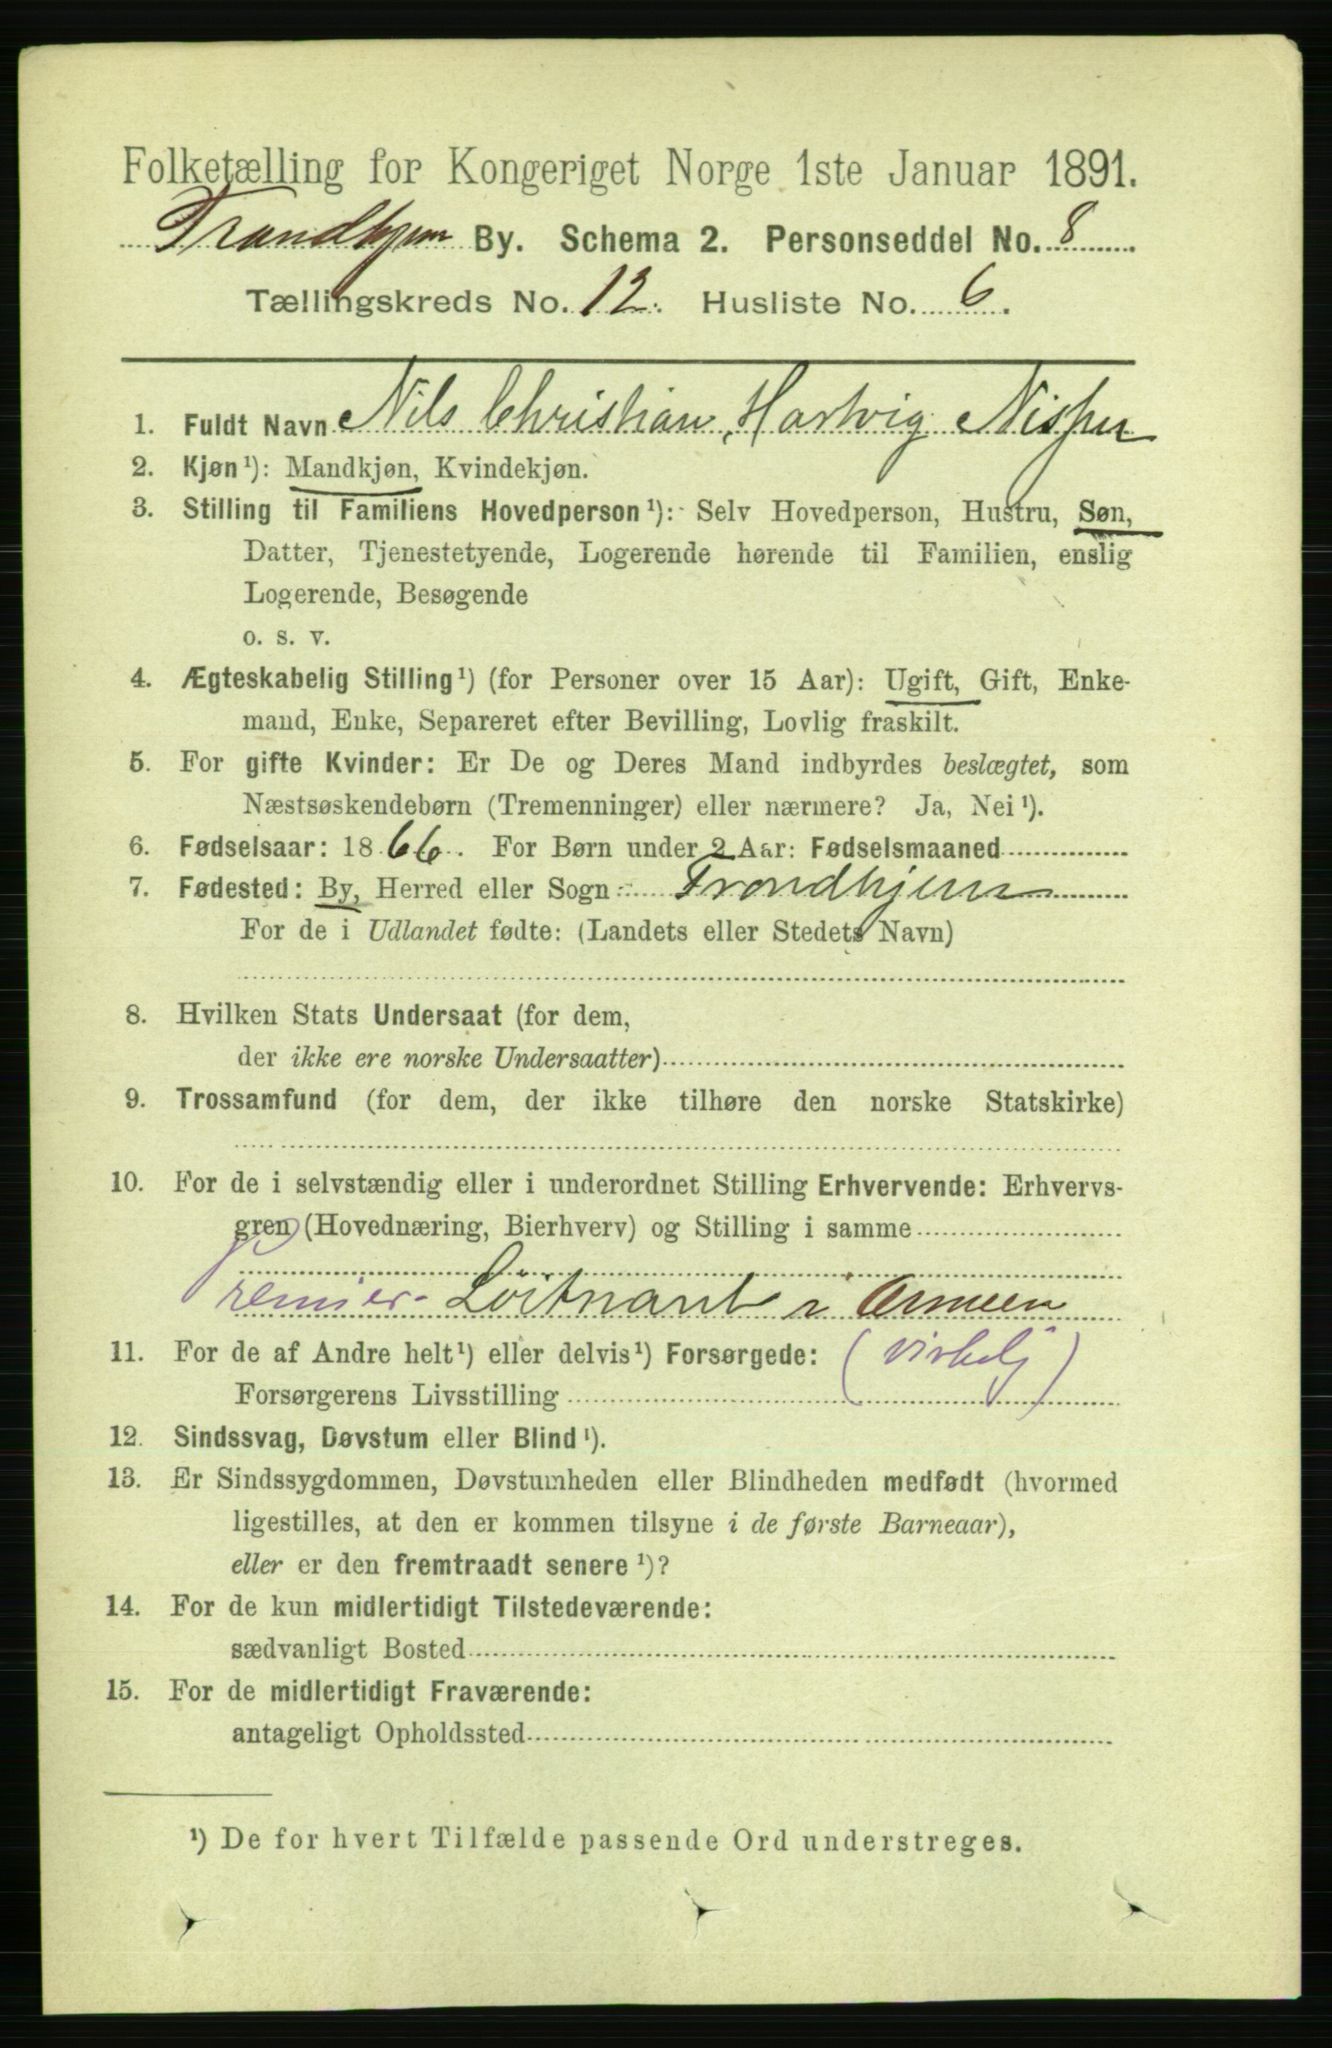 Folketælling for Kongeriget Norge 1ste Januar 1891.
Trondhjem By. Schema 2. Personseddel No. 8
Tællingskreds No. 12. Husliste No. 6.
1. Fuldt Navn Nils Christian Hartvig
2. Kjøn¹): Mandkjøn, Kvindekjøn.
3. Stilling til Familiens Hovedperson¹): Selv Hovedperson, Hustru, Søn,
Datter, Tjenestetyende, Logerende hørende til Familien, enslig
Logerende, Besøgende
o. s. v.
4. Ægteskabelig Stilling¹) (for Personer over 15 Aar): Ugift, Gift, Enke-
mand, Enke, Separeret efter Bevilling, Lovlig fraskilt.
5. For gifte Kvinder: Er De og Deres Mand indbyrdes beslægtet, som
Næstsøskendebørn (Tremenninger) eller nærmere? Ja, Nei¹).
6. Fødselsaar: 1866. For Børn under 2 Aar: Fødselsmaaned
7. Fødested: By, Herred eller Sogn: Trondhjem
For de i Udlandet fødte: (Landets eller Stedets Navn)
8. Hvilken Stats Undersaat (for dem,
der ikke ere norske Undersaatter)
9. Trossamfund (for dem, der ikke tilhøre den norske Statskirke)
10. For de i selvstændig eller i underordnet Stilling Erhvervende: Erhvervs-
gren (Hovednæring, Bierhverv) og Stilling i samme
Premier-Löitnant i Armeen
11. For de af Andre helt¹) eller delvis¹) Forsørgede: (virkelig)
Forsørgerens Livsstilling
12. Sindssvag, Døvstum eller Blind¹).
13. Er Sindssygdommen, Døvstumheden eller Blindheden medfødt (hvormed
ligestilles, at den er kommen tilsyne i de første Barneaar),
eller er den fremtraadt senere¹)?
14. For de kun midlertidigt Tilstedeværende:
sædvanligt Bosted
15. For de midlertidigt Fraværende:
antageligt Opholdssted
¹) De for hvert Tilfælde passende Ord understreges.